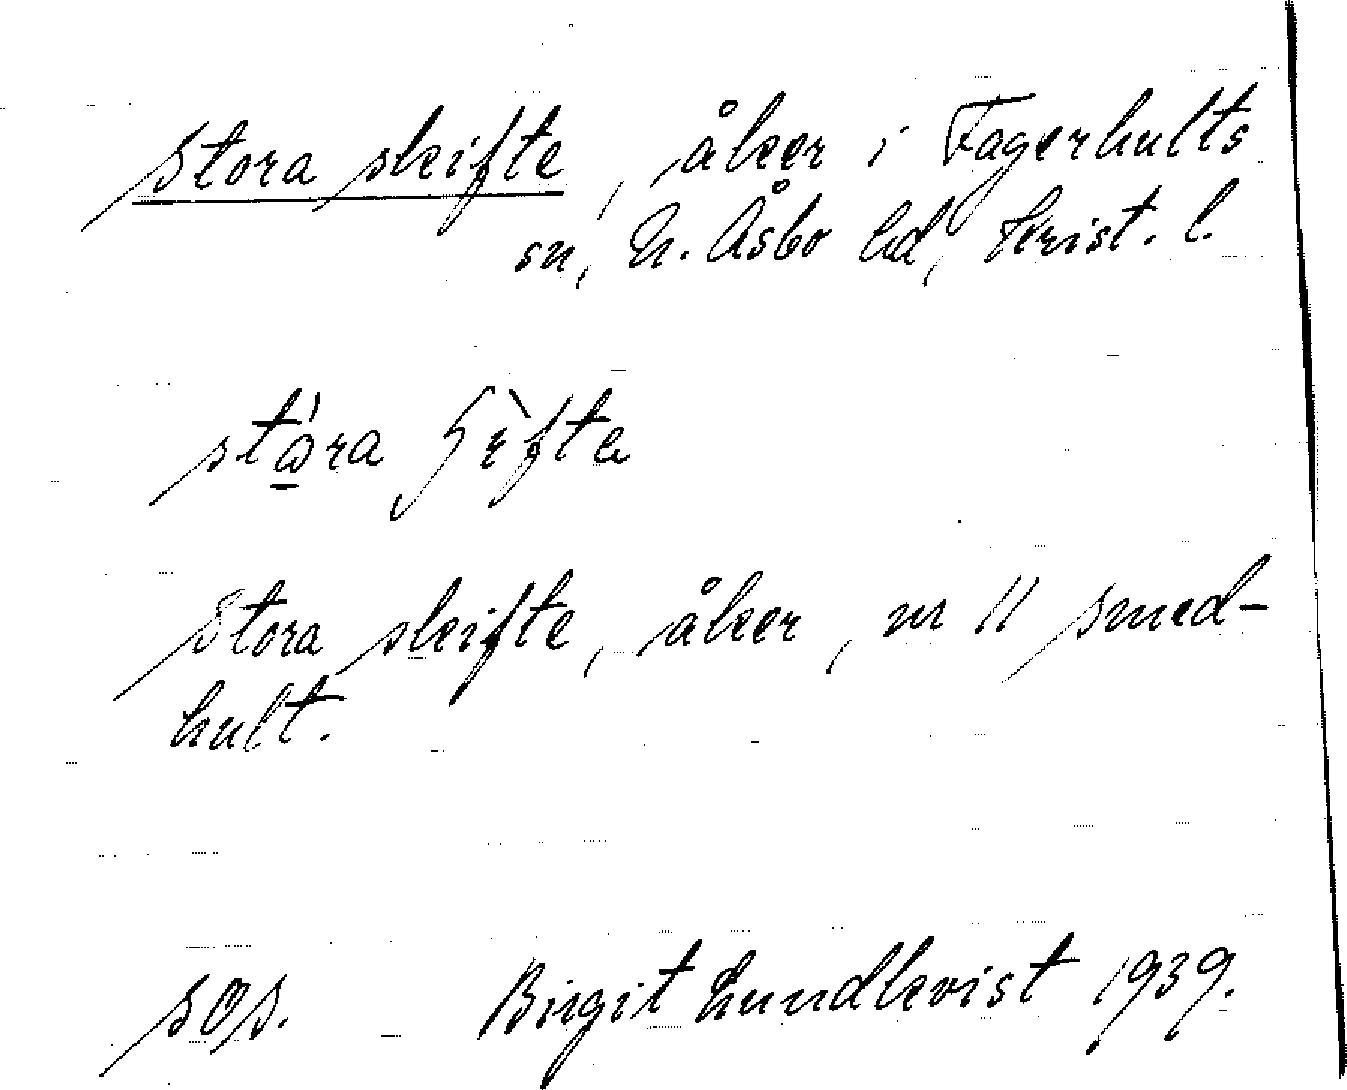 Stora skifte, åker i Fagerhults
sn, N. Åsbo hd, Krist. l.
stɷ̠́ra ʃìfte
Stora skifte, åker, nr 11 Smed-
hult.
SOS. Birgit Lundkvist 1939.